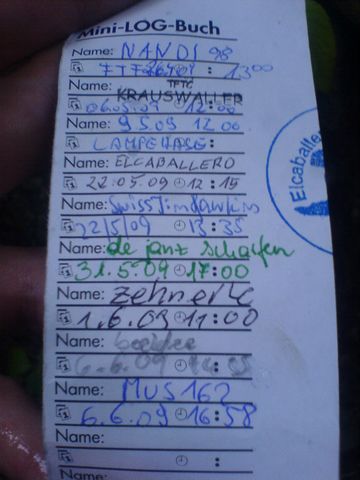 Mini-LOG-Buch
Name: NANDI 98
13:00
Name: TFTC
KRAUSWALLER
06.05.09 12:00
Name: 9.5.09 12.00
LAMPEHASE :
Name: ELCABALLERO
22.05.09 12:15
Name:
22/5/09 13:35
Name: de janz schafen
31.5.09 17:00
Name: Zehnerle
1.6.09 11:00
Name:
6.6.09
Name: MUS162
6.6.09 16:58
Name:
:
Name:
Elcaballe